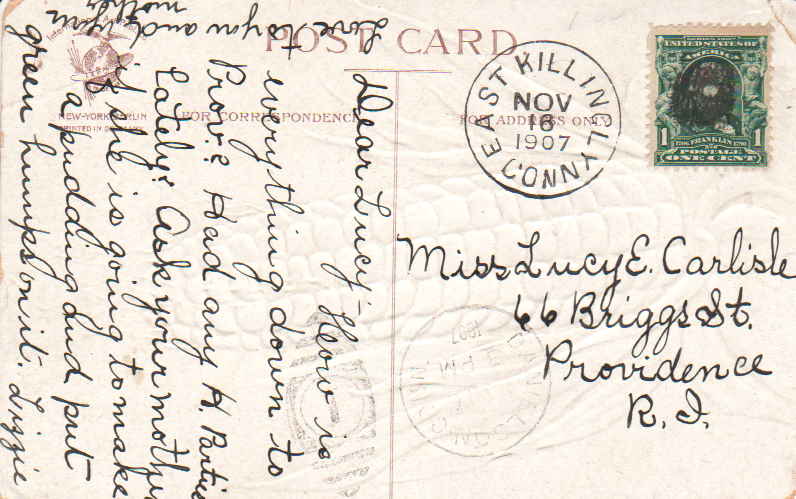 POST CARD
NEW-YORK BERLIN
PRINTED IN
FOR CORRESPONDENCE
FOR ADDRESS ONLY
EAST KILLINGLY
NOV
16
1907
CONN
UNITED STATES OF
AMERICA
1706 FRANKLIN 1790
1 POSTAGE 1
ONE CENT
Miss Lucy E. Carlisle
66 Briggs St.
Providence
R. I.
1907
P.M.
Dear Lucy - How is
everything down to
Prov.? Had any H. Parties
lately? Ask your mother
if she is going to make
a pudding and put
green humps on it. Lizzie
Love to you and your
mother